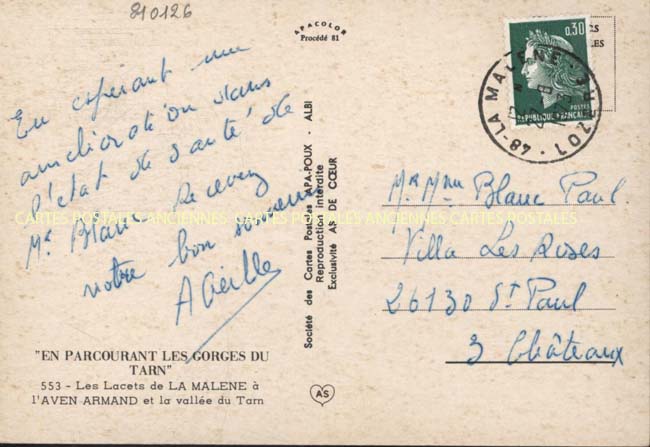 810126
APACOLOR
Procédé 81
En espérant une
amélioration dans
l'état de santé de
Mr Blanc Recevez
notre bon souvenir
"EN PARCOURANT LES GORGES DU
TARN"
553 - Les Lacets de LA MALENE à
l'AVEN ARMAND et la vallée du Tarn
Société des Cartes Postales APA-POUX - ALBI
Reproduction Interdite
Exclusivité AS DE CŒUR
AS
0,30
POSTES
REPUBLIQUE FRANÇAISE
48-LA MALENE
Mr Mme Blanc Paul.
Villa Les Roses
26130 St Paul
3 Châteaux
CARTE POSTALES ANCIENNES CARTES POSTALES ANCIENNES CARTES POSTALES